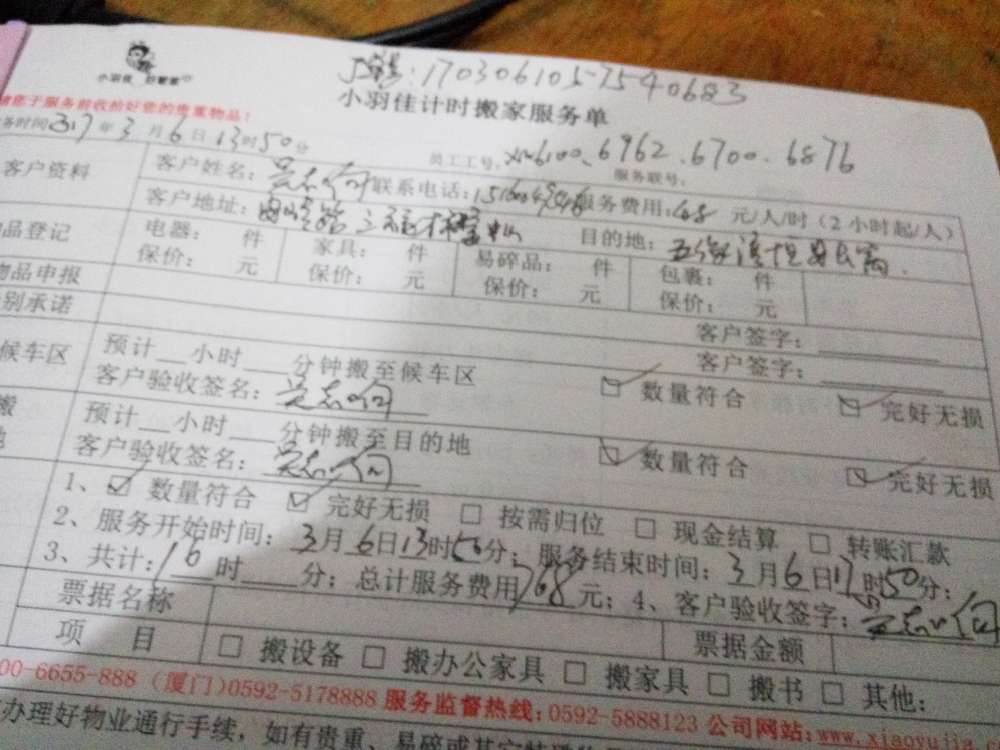 170306105-7540683
小羽佳计时搬家服务单
您于服务前收拾好您的贵重物品!
务时间2017年3月6日13时50分
员工工号: xm6100、6962、6700、6876
服务联号:
客户资料 客户姓名: 联系电话: 服务费用:68元/人/时(2小时起/人)
客户地址: 目的地:
品登记 电器: 件 家具: 件 易碎品: 件 包裹: 件
保价: 元 保价: 元 保价: 元 保价: 元
物品申报 客户签字:
别承诺 客户签字:
候车区 预计__小时___分钟搬至候车区 ☑ 数量符合 ☑ 完好无损
客户验收签名:
搬 预计__小时___分钟搬至目的地 ☑ 数量符合 ☑ 完好无损
地 客户验收签名:
1、☑ 数量符合 ☑ 完好无损 □ 按需归位 □ 现金结算 □ 转账汇款
2、服务开始时间:3月6日13时50分;服务结束时间:3月6日17时50分;
3、共计:16时___分;总计服务费用768元;4、客户验收签字:
票据名称 票据金额
项 目 □ 搬设备 □ 搬办公家具 □ 搬家具 □ 搬书 □ 其他:
00-6655-888(厦门)0592-5178888 服务监督热线:0592-5888123 公司网站:www.xiaoyujia.
办理好物业通行手续,如有贵重、易碎或其它特殊物